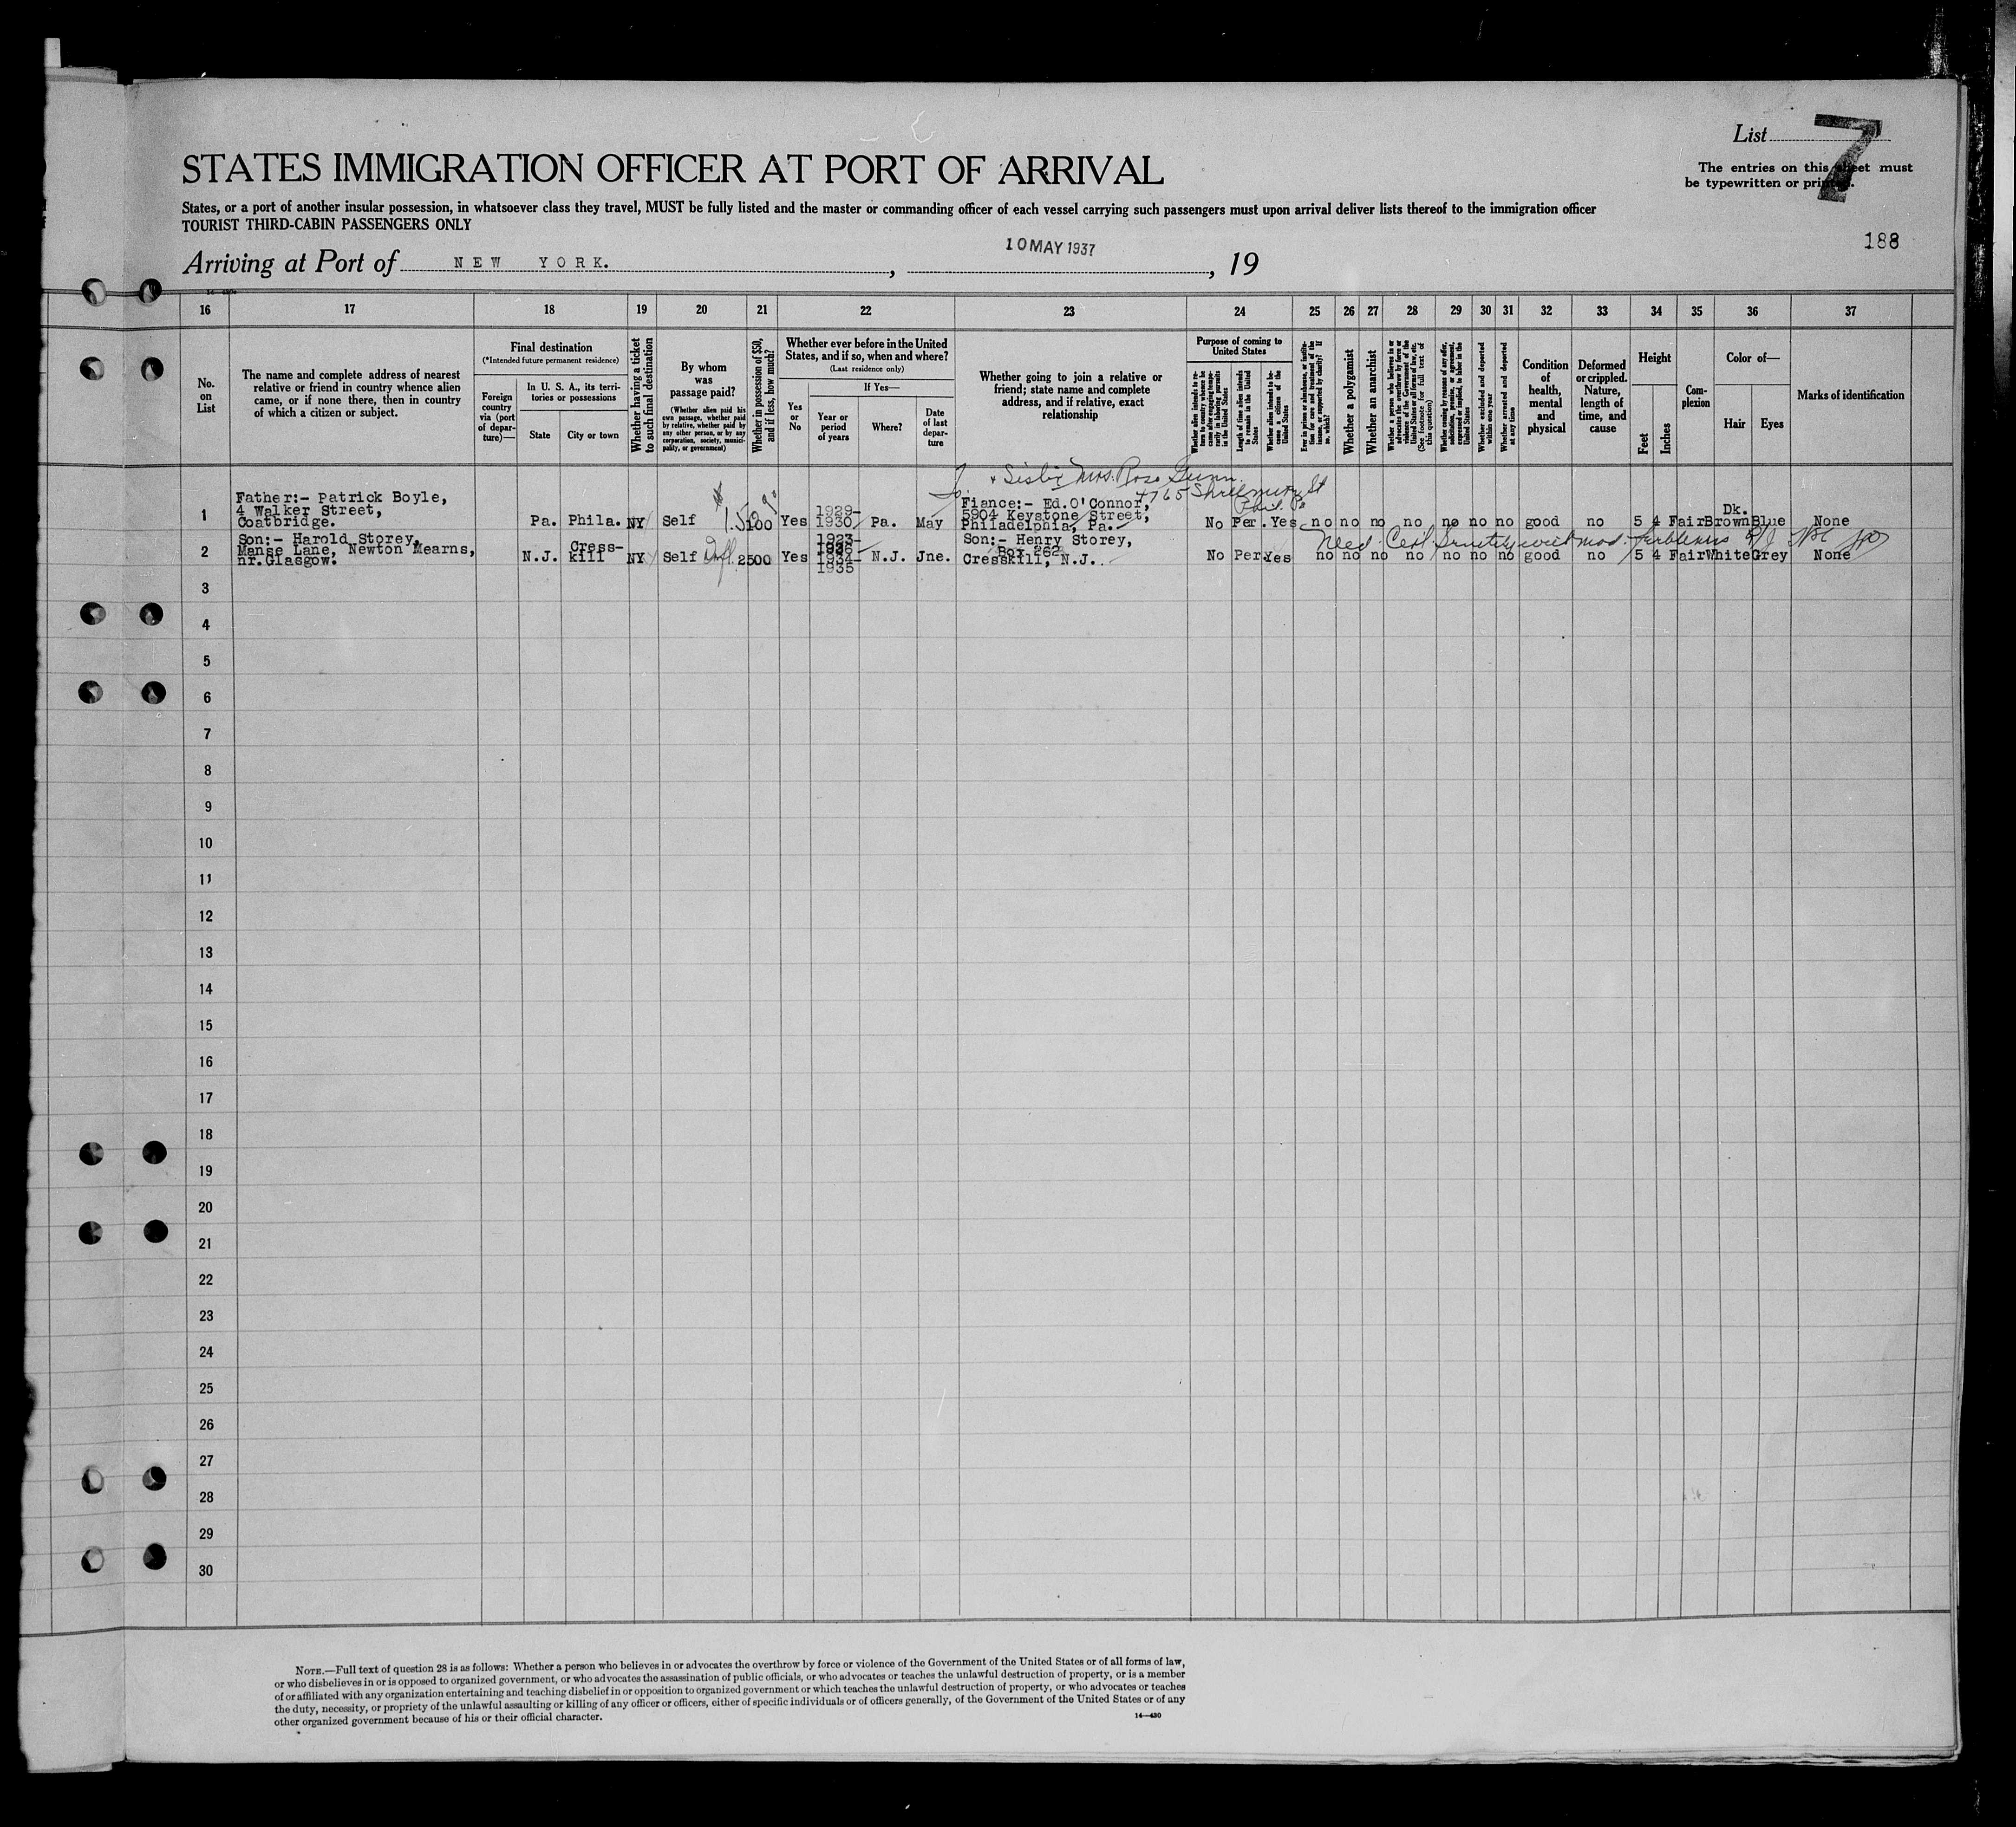 List 7
STATES IMMIGRATION OFFICER AT PORT OF ARRIVAL
The entries on this sheet must
be typewritten or printed.
States, or a port of another insular possession, in whatsoever class they travel, MUST be fully listed and the master or commanding officer of each vessel carrying such passengers must upon arrival deliver lists thereof to the immigration officer
TOURIST THIRD-CABIN PASSENGERS ONLY
188
Arriving at Port of NEW YORK. , 10 MAY 1937 , 19
16 17 18 19 20 21 22 23 24 25 26 27 28 29 30 31 32 33 34 35 36 37
No.
on
List
The name and complete address of nearest
relative or friend in country whence alien
came, or if none there, then in country
of which a citizen or subject.
Final destination
(*Intended future permanent residence)
Foreign
country
via (port
of depar-
ture)—
In U. S. A., its terri-
tories or possessions
State
City or town
Whether having a ticket
to such final destination
By whom
was
passage paid?
(Whether alien paid his
own passage, whether paid
by relative, whether paid by
any other person, or by any
corporation, society, munici-
pality, or government)
Whether in possession of $50,
and if less, how much?
Whether ever before in the United
States, and if so, when and where?
(Last residence only)
Yes
or
No
If Yes—
Year or
period
of years
Where?
Date
of last
depar-
ture
Whether going to join a relative or
friend; state name and complete
address, and if relative, exact
relationship
Purpose of coming to
United States
Whether alien intends to re-
turn to country whence he
came after engaging tempo-
rarily in laboring pursuits
in the United States
Length of time alien intends
to remain in the United
States
Whether alien intends to be-
come a citizen of the
United States
Ever in prison or almshouse, or institu-
tion for care and treatment of the
insane, or supported by charity? If
so, which?
Whether a polygamist
Whether an anarchist
Whether a person who believes in or
advocates the overthrow by force or
violence of the Government of the
United States or all forms of law, etc.
(See footnote for full text of
this question)
Whether coming by reason of any offer,
solicitation, promise, or agreement,
expressed or implied, to labor in the
United States
Whether excluded and deported
within one year
Whether arrested and deported
at any time
Condition
of
health,
mental
and
physical
Deformed
or crippled.
Nature,
length of
time, and
cause
Height
Feet
Inches
Com-
plexion
Color of—
Hair
Eyes
Marks of identification
Sister Mrs. Rose Gunn
4765
Phil. Pa
1
Father:- Patrick Boyle,
4 Walker Street,
Coatbridge.
Pa. Phila. NY Self 100 Yes
1929-
1930
Pa. May
Fiance:- Ed.O'Connor,
5904 Keystone Street,
Philadelphia, Pa.
No Per. Yes no no no no no no no good no 5 4 Fair
Dk.
Brown
Blue None
2
Son:- Harold Storey,
Manse Lane, Newton Mearns,
nr.Glasgow.
N.J.
Cress-
kill
NY Self 2500 Yes
1923-
1926
1934-
1935
N.J. Jne.
Son:- Henry Storey,
Box 262
Cresskill, N.J.
Med. Cert.
No Per. Yes no no no no no no no good no 5 4 Fair White Grey None
3
4
5
6
7
8
9
10
11
12
13
14
15
16
17
18
19
20
21
22
23
24
25
26
27
28
29
30
NOTE.—Full text of question 28 is as follows: Whether a person who believes in or advocates the overthrow by force or violence of the Government of the United States or of all forms of law,
or who disbelieves in or is opposed to organized government, or who advocates the assassination of public officials, or who advocates or teaches the unlawful destruction of property, or is a member
of or affiliated with any organization entertaining and teaching disbelief in or opposition to organized government or which teaches the unlawful destruction of property, or who advocates or teaches
the duty, necessity, or propriety of the unlawful assaulting or killing of any officer or officers, either of specific individuals or of officers generally, of the Government of the United States or of any
other organized government because of his or their official character.
14—430